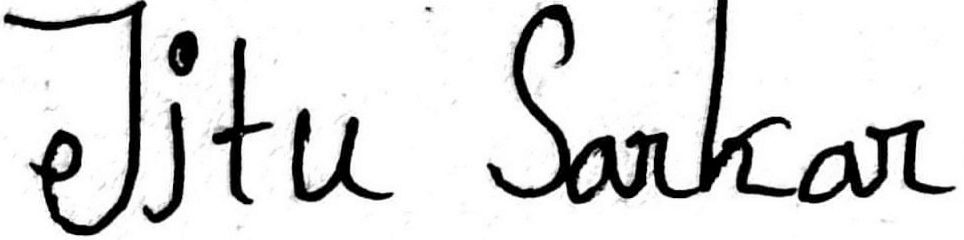 Jitu Sarkar